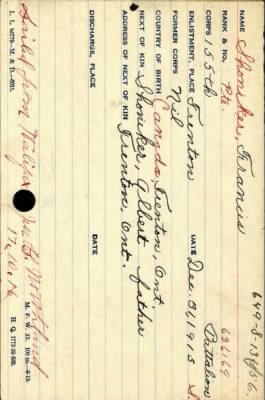 649-S-13856
NAME Shoniker, Francis
RANK & NO. Pte. 636169
CORPS 155th Battalion
ENLISTMENT, PLACE Trenton DATE Dec. 31 1915
FORMER CORPS Nil
COUNTRY OF BIRTH Canada, Trenton, Ont.
NEXT OF KIN Shoniker, Albert father
ADDRESS OF NEXT OF KIN Trenton, Ont.
DISCHARGE, PLACE DATE
Sailed from Halifax per S.S. Northland
M. F. W. 22. 100m-8-15.
H. Q. 1772-39-830.